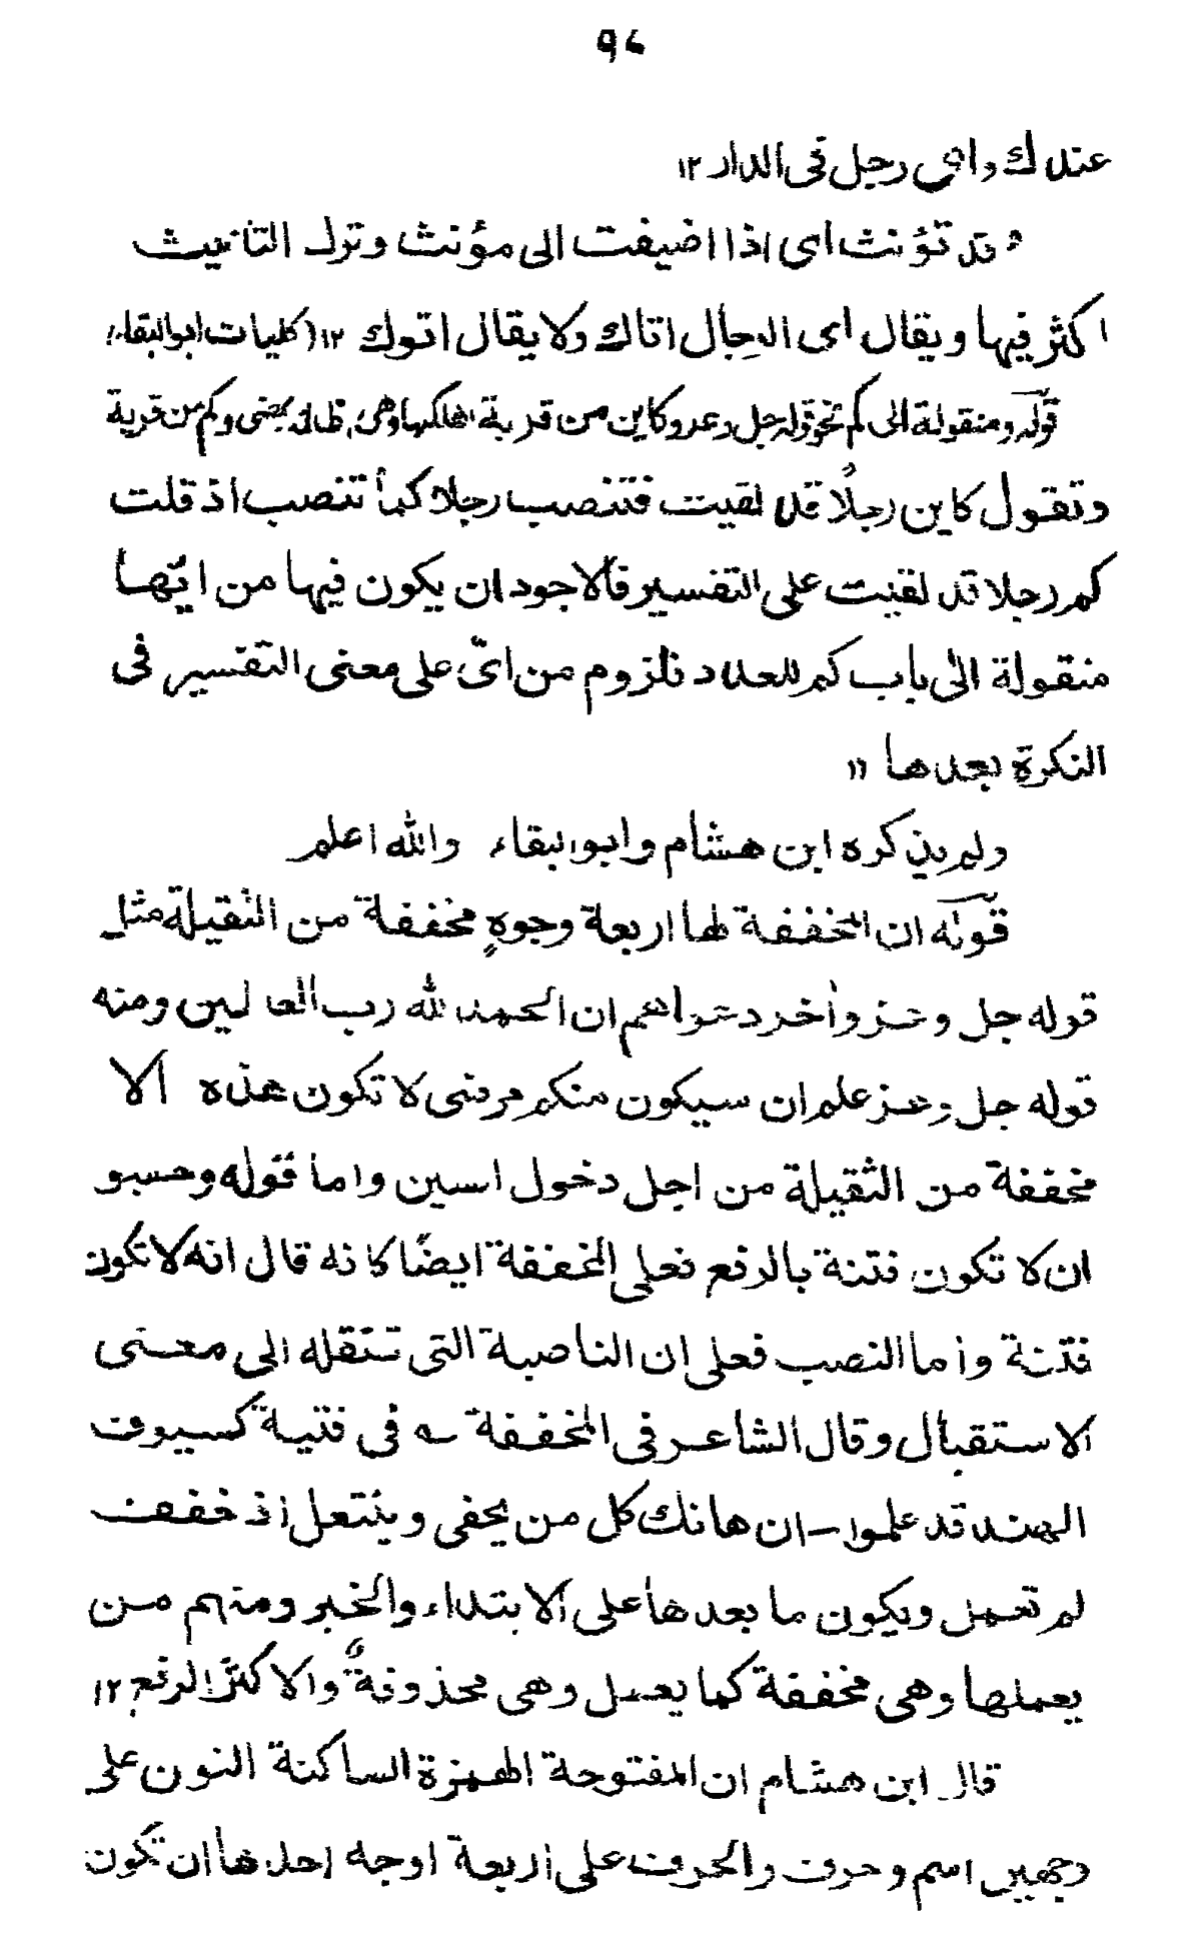 ٩٤
عندك وای رجل فی الدار ١٢
وقد تؤنث ای اذا اضیفت الی مؤنث وترك التانیث
اكثر فیها ویقال ای الرجال اتاك ولا یقال اتوك ١٢ (كلیات ابوالبقاء)
قوله ومنقولة الی كم نحو قوله جل وعز وكاین من قریة اهلكنها وهی ظالمة بمعنی وكم من قریة
وتقول كاین رجلًا قد لقیت فتنصب رجلا كما تنصب اذ قلت
كم رجلا قد لقیت علی التفسیر فالاجود ان یكون فیها من اتها
منقولة الی باب كم للعدد فلزوم من ایّ علی معنی التفسیر فی
النكرة بعدها ١٢
ولم یذكره ابن هشام وابوالبقاء والله اعلم
قوله ان المخففة لها اربعة وجوهٍ مخففة من الثقیلة مثل
قوله جل وعز واٰخر دعواهم ان الحمد لله رب العالمین ومنه
قوله جل وعز علم ان سیكون منكم مرضی لا تكون هذه الا
مخففة من الثقیلة من اجل دخول السین واما قوله وحسبو
ان لا تكون فتنة بالرفع فعلی المخففة ایضًا كانه قال انه لا تكون
فتنة واما النصب فعلی ان الناصبة التی تنقله الی معنی
الاستقبال وقال الشاعر فی المخففة ـه فی فتیة كسیوف
الهند قد علموا ـ ان هالك كل من یحفی وینتعل اذ خففت
لم تعمل ویكون ما بعدها علی الابتداء والخبر ومنهم من
یعملها وهی مخففة كما یعمل وهی محذوفةٌ والاكثر الرفع ١٢
قال ابن هشام ان المفتوحة الهمزة الساكنة النون علی
وجهین اسم وحرف والحرف علی اربعة اوجه احدها ان تكون